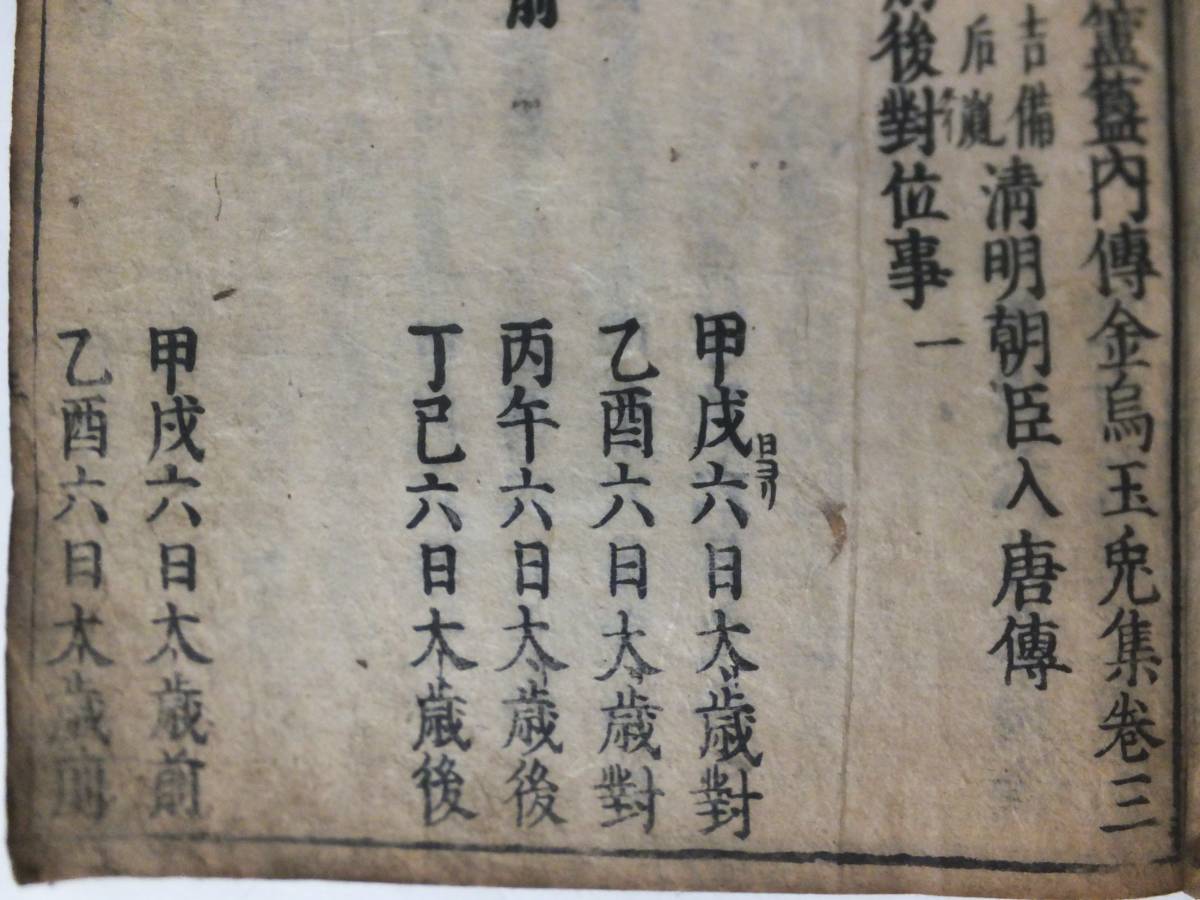 簠簋內傳金烏玉兎集卷三
吉備
后
清明朝臣入唐傳
前後對位事一
甲戌六日大歳對
日ヨリ
乙酉六日大歳對
丙午六日大歳後
丁巳六日大歳後
前
甲戌六日大歳前
乙酉六日大歳前